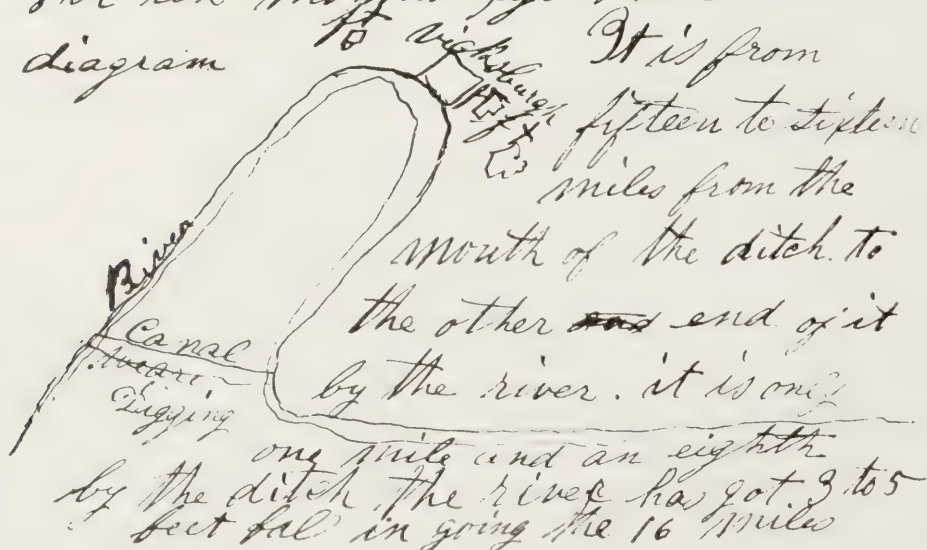 diagram
ft
vicksburgh
ft
ft
It is from
fifteen to sixteen
miles from the
mouth of the ditch to
the other end of it
by the river. it is only
one mile and an eighth
by the ditch the river has got 3 to 5
feet fal in going the 16 miles
River
Canal
we are
Digging